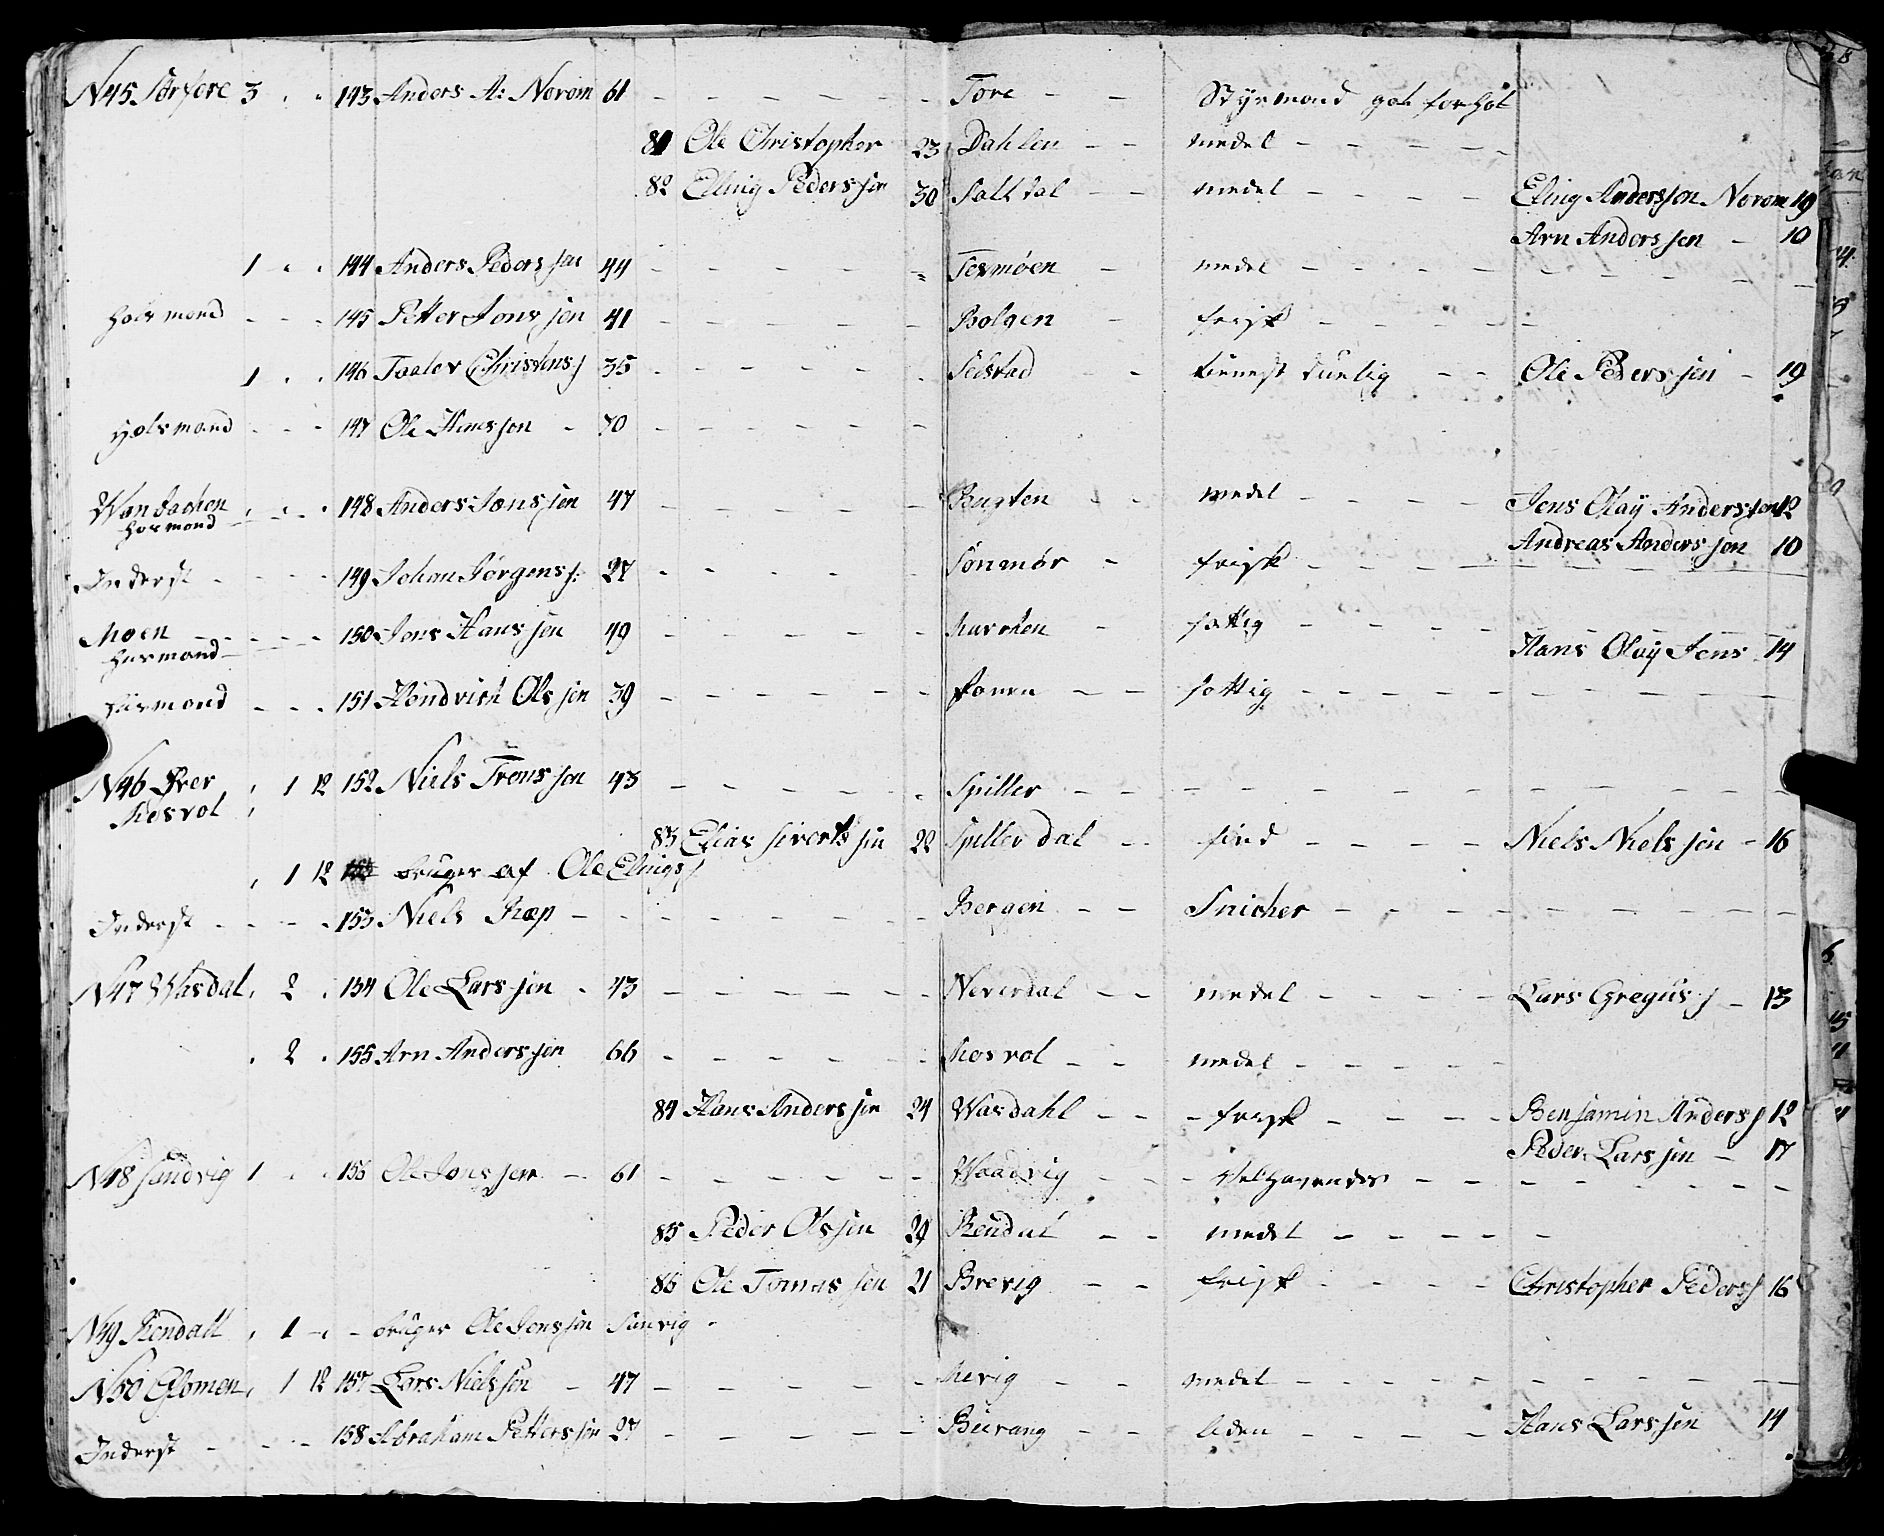 N45 Sørfere 3 143 Anders A: Norom 61 Tore Styrmand got forhot
81 Ole Christopher 23 Dahlen medel
82 Eling Pedersjen 30 Saltdal medel Eling Andersjon Norom 19
Arn Andersjen 10
1 144 Anders Pedersjen 44 Tesmøen medel
Hosmand 145 Petter Jonsjen 41 Bolgen frisk
1 146 Taalov Christens: 35 Selstad tienest duelig Ole Pedersjen 19
Hosmand 147 Ole Hansjon 70
Wandachen 148 Anders Jonsjen 47 Bugten medel Jens Olay Andersjen 12
Hosmand Andreas Andersjen 10
Inderst 149 Johan Jørgens: 27 Sønmør frisk
Moen 150 Jens Hansjen 49 fattig
Husmand Hans Olay Jens 14
Husmand 151 Hendrich Olsjen 39 fattig
N46 Øver 1 12 152 Niels Tronsjon 43 Spiller
Kosvol
83 Elias Sivertsjen 22 Spillerdal find Niels Nielsjen 16
1 12 bruger af Ole Elings
Inderst 153 Niels Rap Bergen Snicher
N47 Wasdal 2 154 Ole Larsjen 43 Neverdal medel Lars Gregus 13
2 155 Arn Andersjen 66 Kosvol medel
84 Hans Andersjen 24 Wasdahl frisk Benjamin Anders 12
Peder Larsjen 17
N48 Sundvig 1 156 Ole Jonsjen 61 Waadvig velhavendes
85 Peder Olsjen 29 Rendal medel
86 Ole Tomasjen 21 Brevig frisk Christopher Peders 16
N49 Rendall 1 bruger Ole Jonsjon Sunvig
N50 Glomen 1 12 157 Lars Nielsjon 47 medel
Inderst 158 Abraham Pettersjen 27 Beirang liden Hans Larsjen 14